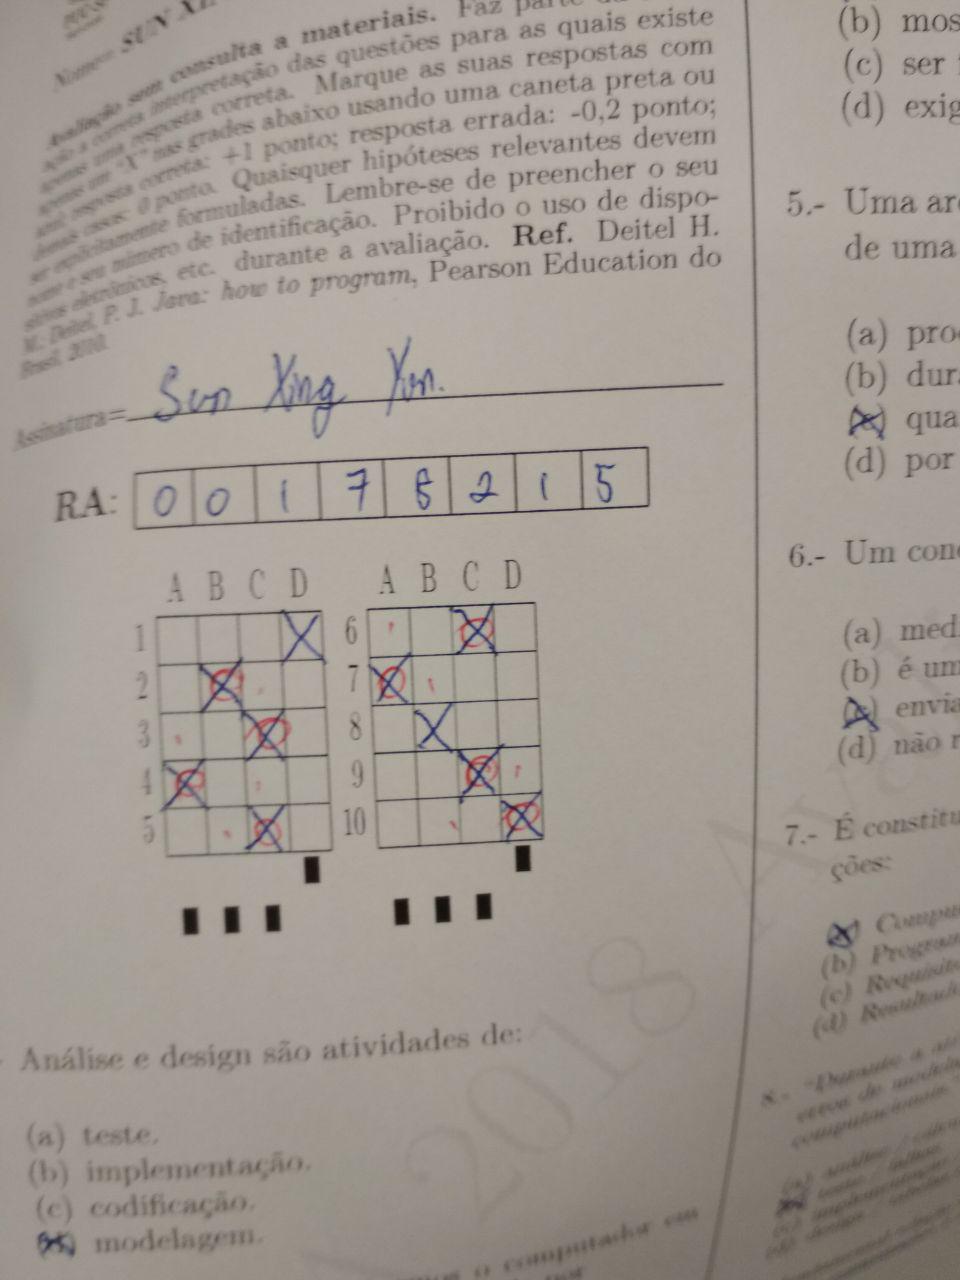 Nome= SUN XI
Avaliação sem consulta a materiais. Faz parte da
ação a correta interpretação das questões para as quais existe
apenas uma resposta correta. Marque as suas respostas com
apenas um "X" nas grades abaixo usando uma caneta preta ou
azul; resposta correta: +1 ponto; resposta errada: -0,2 ponto;
demais casos: 0 ponto. Quaisquer hipóteses relevantes devem
ser explicitamente formuladas. Lembre-se de preencher o seu
nome e seu número de identificação. Proibido o uso de dispo-
sitivos eletrônicos, etc. durante a avaliação. Ref. Deitel H.
M.; Deitel, P. J. Java: how to program, Pearson Education do
Brasil, 2010.
Assinatura= Sun Xing Xin.
RA: 0 0 1 7 8 2 1 5
A B C D
1
2
3
4
5
A B C D
6
7
8
9
10
Análise e design são atividades de:
(a) teste.
(b) implementação.
(c) codificação.
modelagem.
o computador em
2018
(b) mos
(c) ser
(d) exig
5.- Uma
de uma
(a) pro
(b) dur
qua
(d) por
6.- Um con
(a) med
(b) é um
envia
(d) não
7.- É constitu
ções:
Compu
(b) Program
(c) Requisito
(d) Resultad
8.- "Durante a